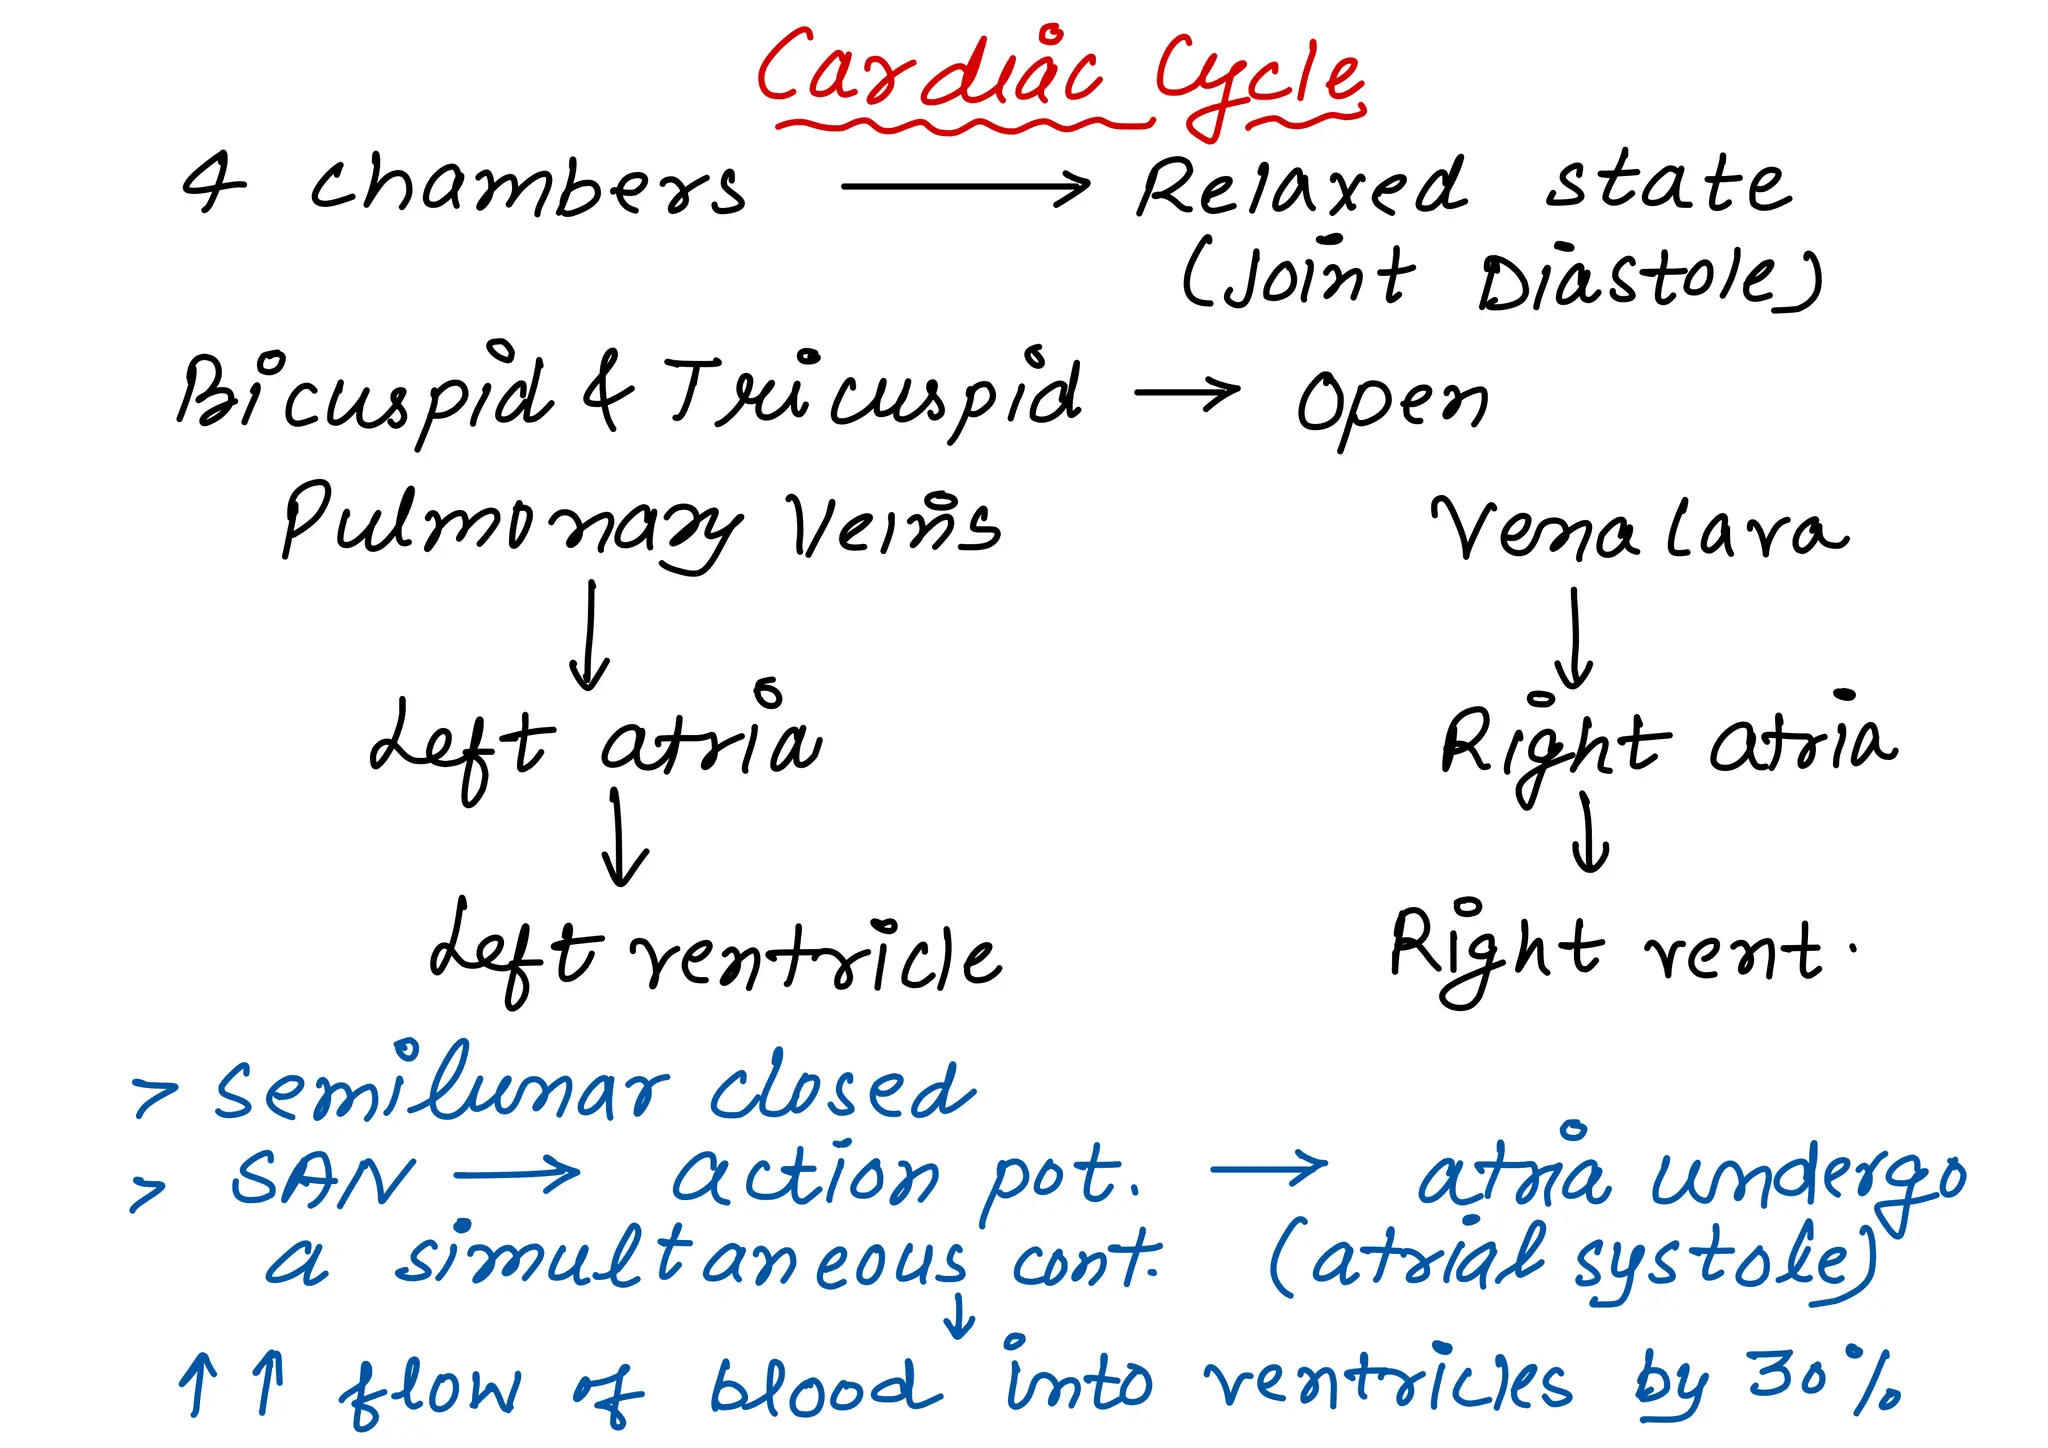 Cardiac Cycle
4 chambers → Relaxed state
(Joint Diastole)
Bicuspid & Tricuspid → Open
Pulmonary Veins Vena Cava
↓ ↓
Left atria Right atria
↓ ↓
Left ventricle Right vent.
> Semilunar closed
> SAN → action pot. → atria undergo
a simultaneous cont. (atrial systole)
↓
↑↑ flow of blood into ventricles by 30%